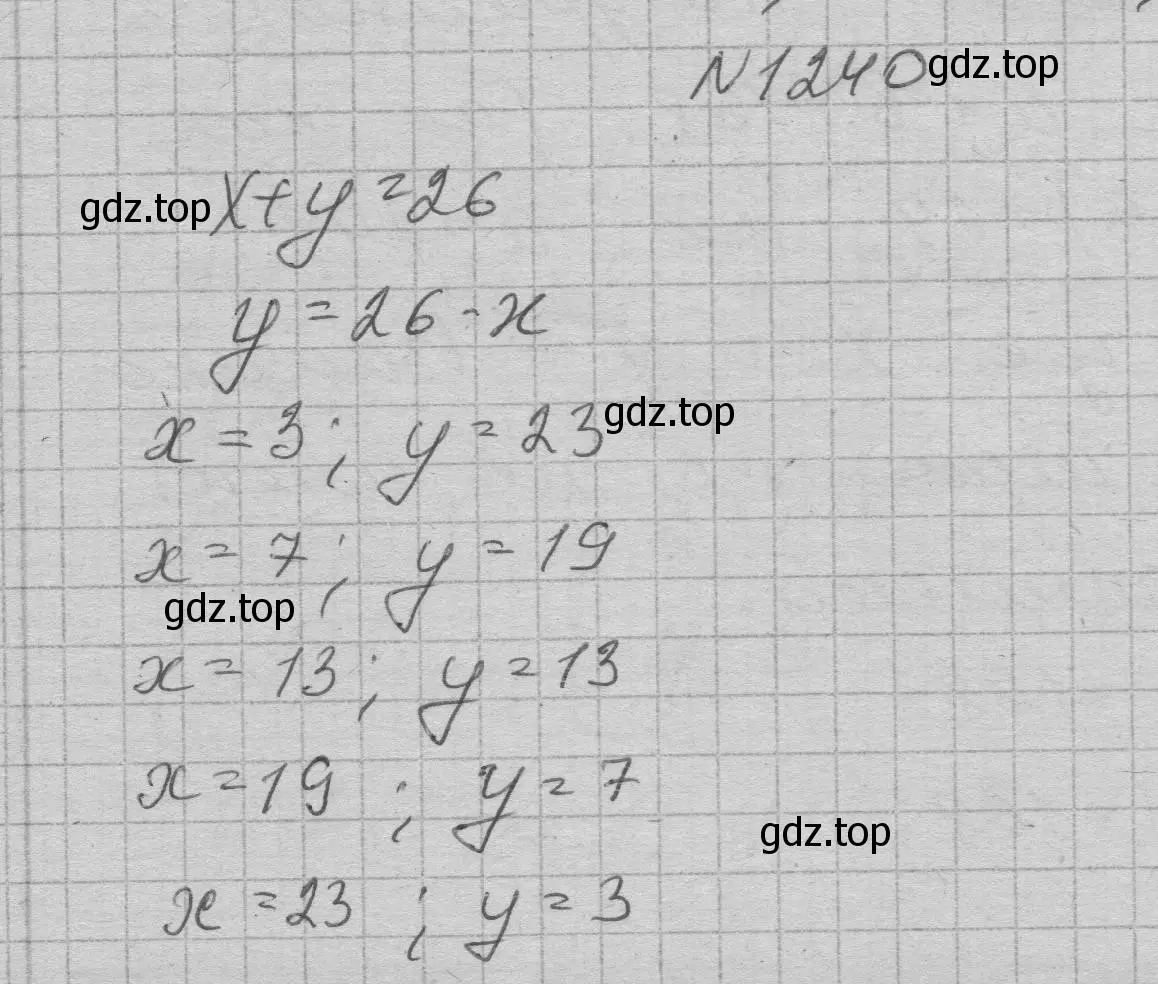 N1240 gdz.top
gdz.top x+y=26
y=26-x
x=3; y=23 gdz.top
x=7; y=19
gdz.top
x=13; y=13
x=19; y=7
gdz.top
x=23; y=3